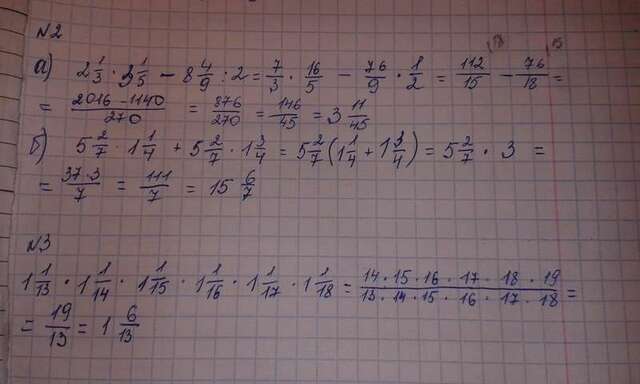 №2
а) 2 1/3 · 3 1/5 − 8 4/9 : 2 = 7/3 · 16/5 − 76/9 · 1/2 = 112/15 − 76/18 =
= (2016 − 1140)/270 = 876/270 = 146/45 = 3 11/45
б) 5 2/7 · 1 1/4 + 5 2/7 · 1 3/4 = 5 2/7 (1 1/4 + 1 3/4) = 5 2/7 · 3 =
= (37·3)/7 = 111/7 = 15 6/7
№3
1 1/13 · 1 1/14 · 1 1/15 · 1 1/16 · 1 1/17 · 1 1/18 = (14 · 15 · 16 · 17 · 18 · 19)/(13 · 14 · 15 · 16 · 17 · 18) =
= 19/13 = 1 6/13